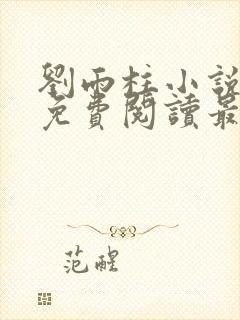 劉雨柱小說
免費閱讀最
范醒